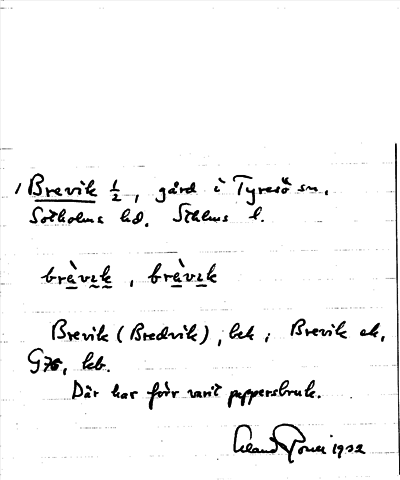 1 Brevik ½, gård i Tyresö sn,
Sotholms hd, Sthlms l.
brèvık, brèvık
Brevik (Bredvik), bek; Brevik ek,
G76, kb.
Där har förr varit pappersbruk.
1932